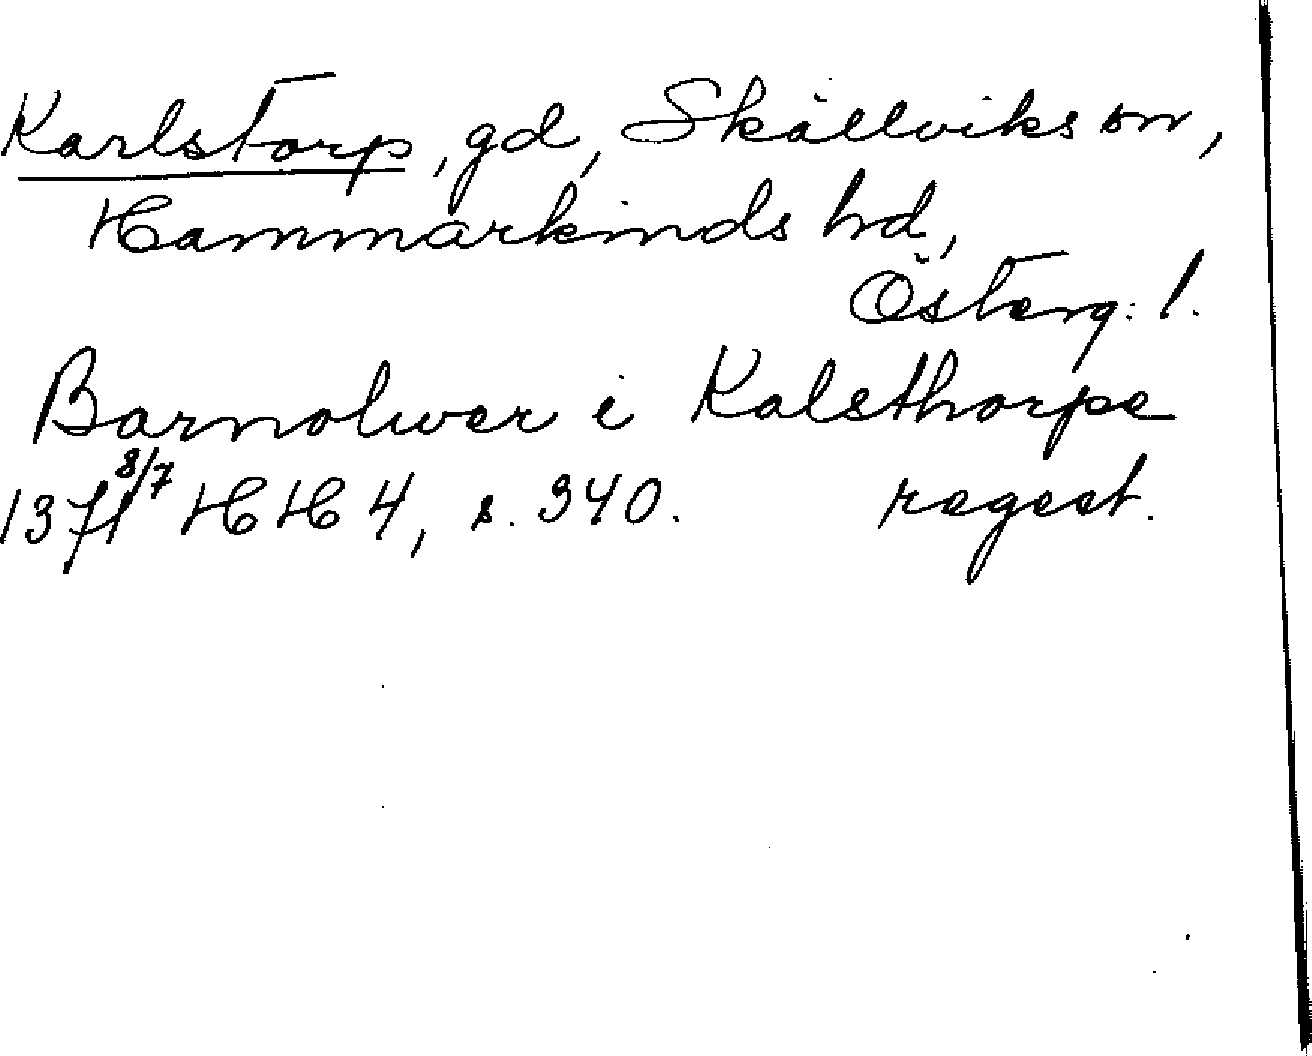 Karlstorp, gd, Skällviks sn,
Hammarkinds hd,
Österg. l.
Barnolwer i Kalsthorpe
1371 8/7 HH 4, s. 340. regest.